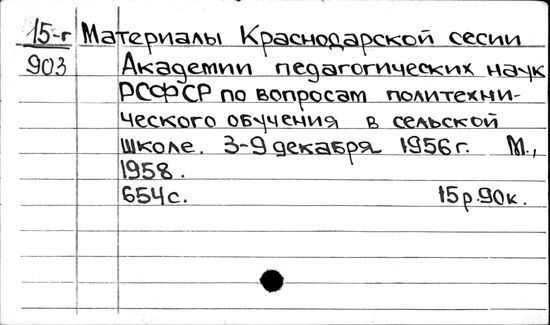 15-г Материалы Краснодарской сесии
903 Академии педагогических наук
РСФСР по вопросам политехни-
ческого обучения в сельской
школе. 3-9 декабря 1956г. М.,
1958.
654с. 15р.90к.